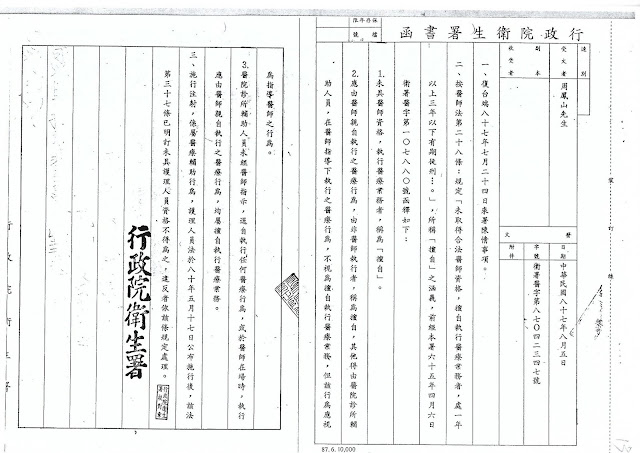 行政院衛生署書函
保存年限
檔號
速別
受文者
周鳳山先生
副本
收受者
發文
日期
中華民國八十七年八月五日
字號
衛署醫字第八七〇四二三四七號
附件
一、復台端八十七年七月二十四日來署陳情事項。
二、按醫師法第二十八條：規定「未取得合法醫師資格，擅自執行醫療業務者，處一年
以上三年以下有期徒刑…。」，所稱「擅自」之涵義，前經本署六十五年四月六日
衛署醫字第一〇七八八〇號函釋如下：
1.未具醫師資格，執行醫療業務者，稱為「擅自」。
2.應由醫師親自執行之醫療行為，由非醫師執行者，稱為擅自，其他得由醫院診所輔
助人員，在醫師指導下執行之醫療行為，不視為擅自執行醫療業務，但該行為應視
為指導醫師之行為。
3.醫院診所輔助人員未經醫師指示，逕自執行任何醫療行為，或於醫師在場時，執行
應由醫師親自執行之醫療行為，均屬擅自執行醫療業務。
三、施行注射，係屬醫療輔助行為，護理人員法於八十年五月十七日公布施行後，該法
第三十七條已明訂未具護理人員資格不得為之，違反者依該條規定處理。
行政院衛生署
裝訂線
行政院衛生署
87.6.10,000